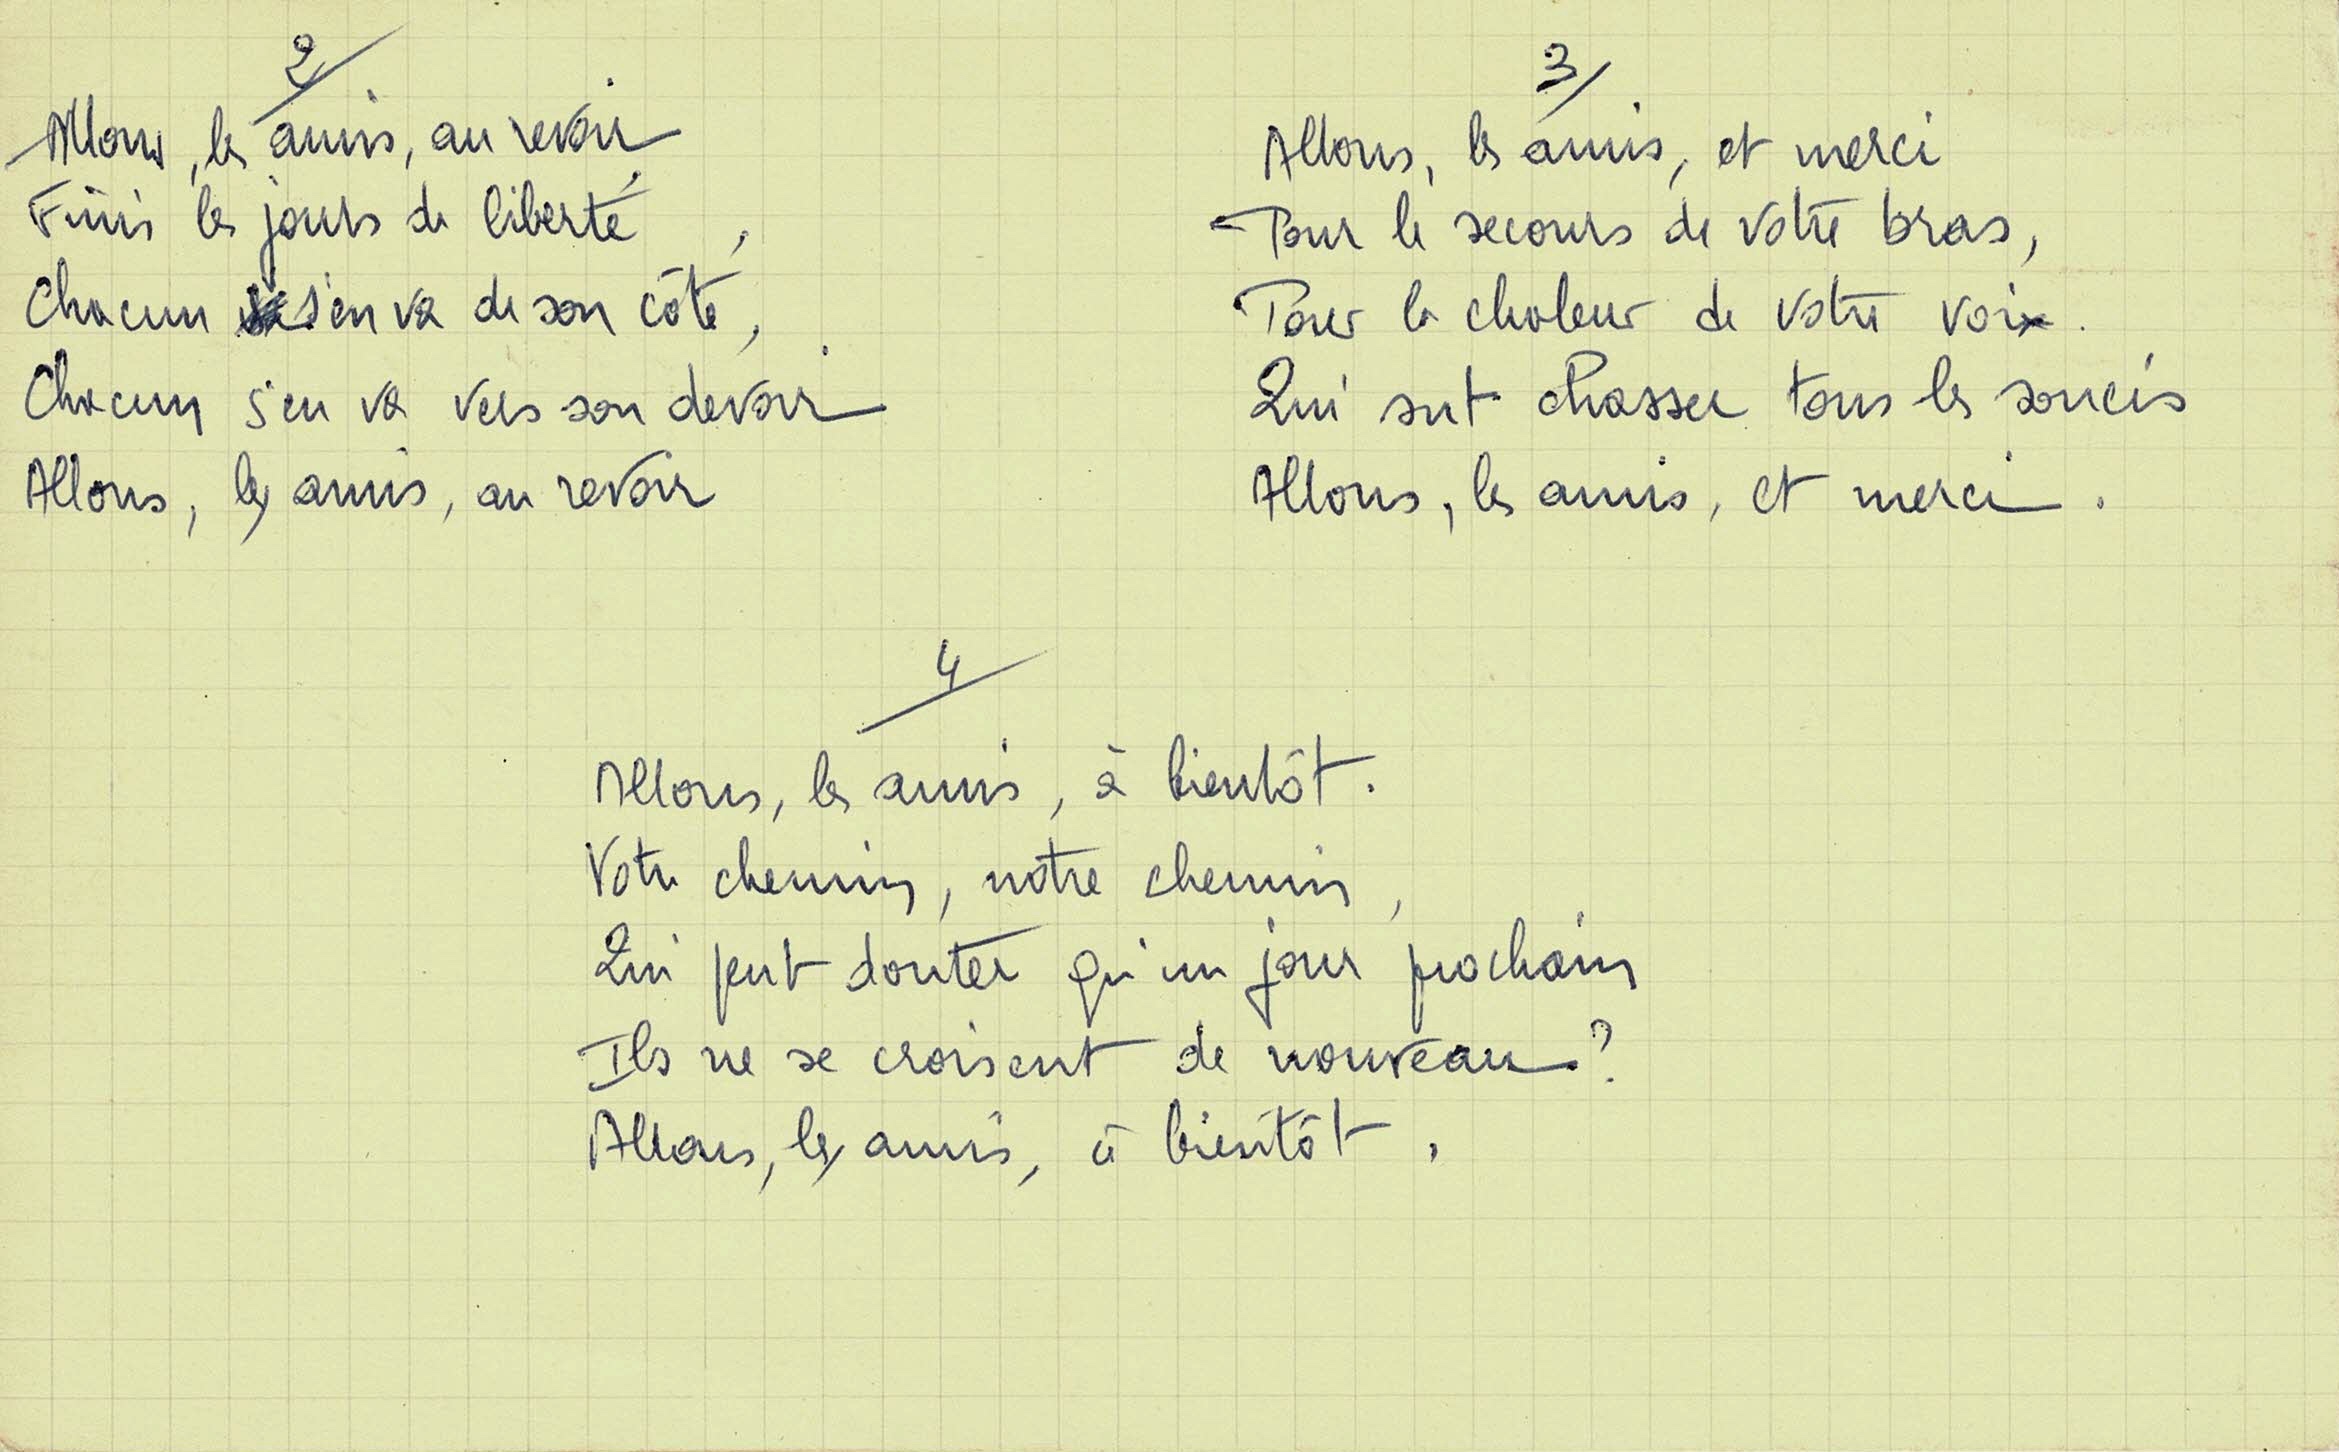 2/
Allons, les amis, au revoir
Finis les jours de liberté,
Chacun s'en va de son côté,
Chacun s'en va vers son devoir
Allons, les amis, au revoir
3/
Allons, les amis, et merci
Pour le secours de votre bras,
Pour la chaleur de votre voix.
Qui sut chasser tous les soucis
Allons, les amis, et merci.
4/
Allons, les amis, à bientôt.
Votre chemin, notre chemin,
Qui peut douter qu'un jour prochain
Ils ne se croisent de nouveau ?
Allons, les amis, à bientôt.